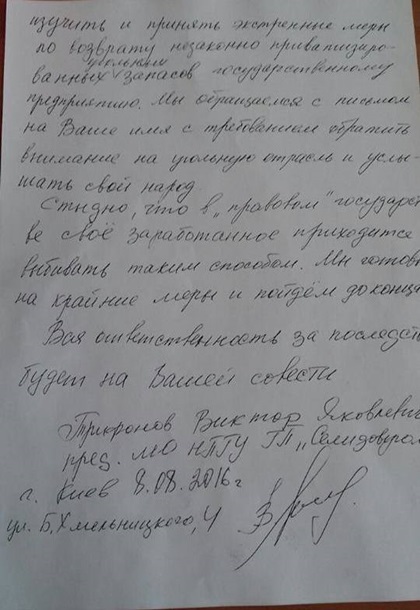 изучить и принять экстренные меры
по возврату незаконно приватизиро-
угольных
ванных запасов государственному
предприятию. Мы обращаемся с письмом
на Ваше имя с требованием обратить
внимание на угольную отрасль и услы-
шать свой народ.
Стыдно, что в „правовом" государст
ве своё заработанное приходится
выбивать таким способом. Мы готовы
на крайние меры и пойдём до конца
Вся ответственность за последст
будет на Вашей совести
Трифонов Виктор Яковлевич
пред. МО НПГУ ГП „Селидовугол
г. Киев 8.08.2016г
ул. Б.Хмельницкого, 4